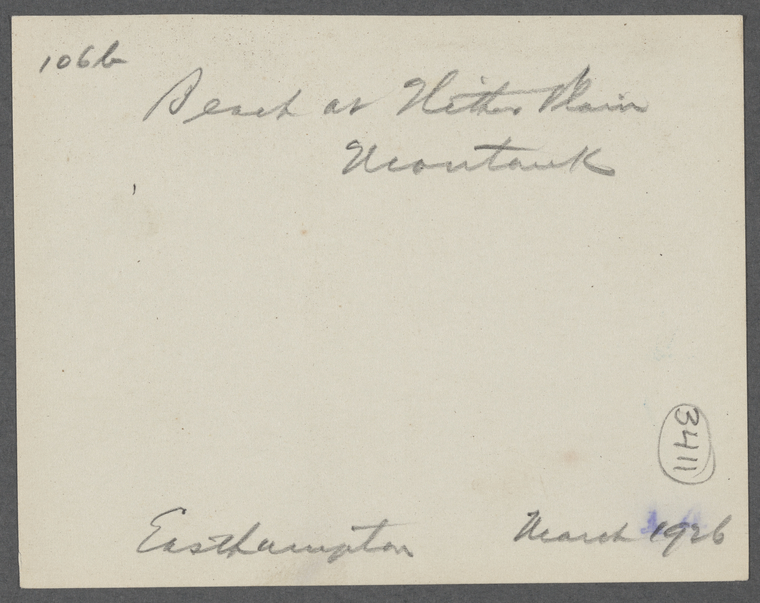 106b
Beach at Hither Plain
Montauk
3411
Easthampton March 1926